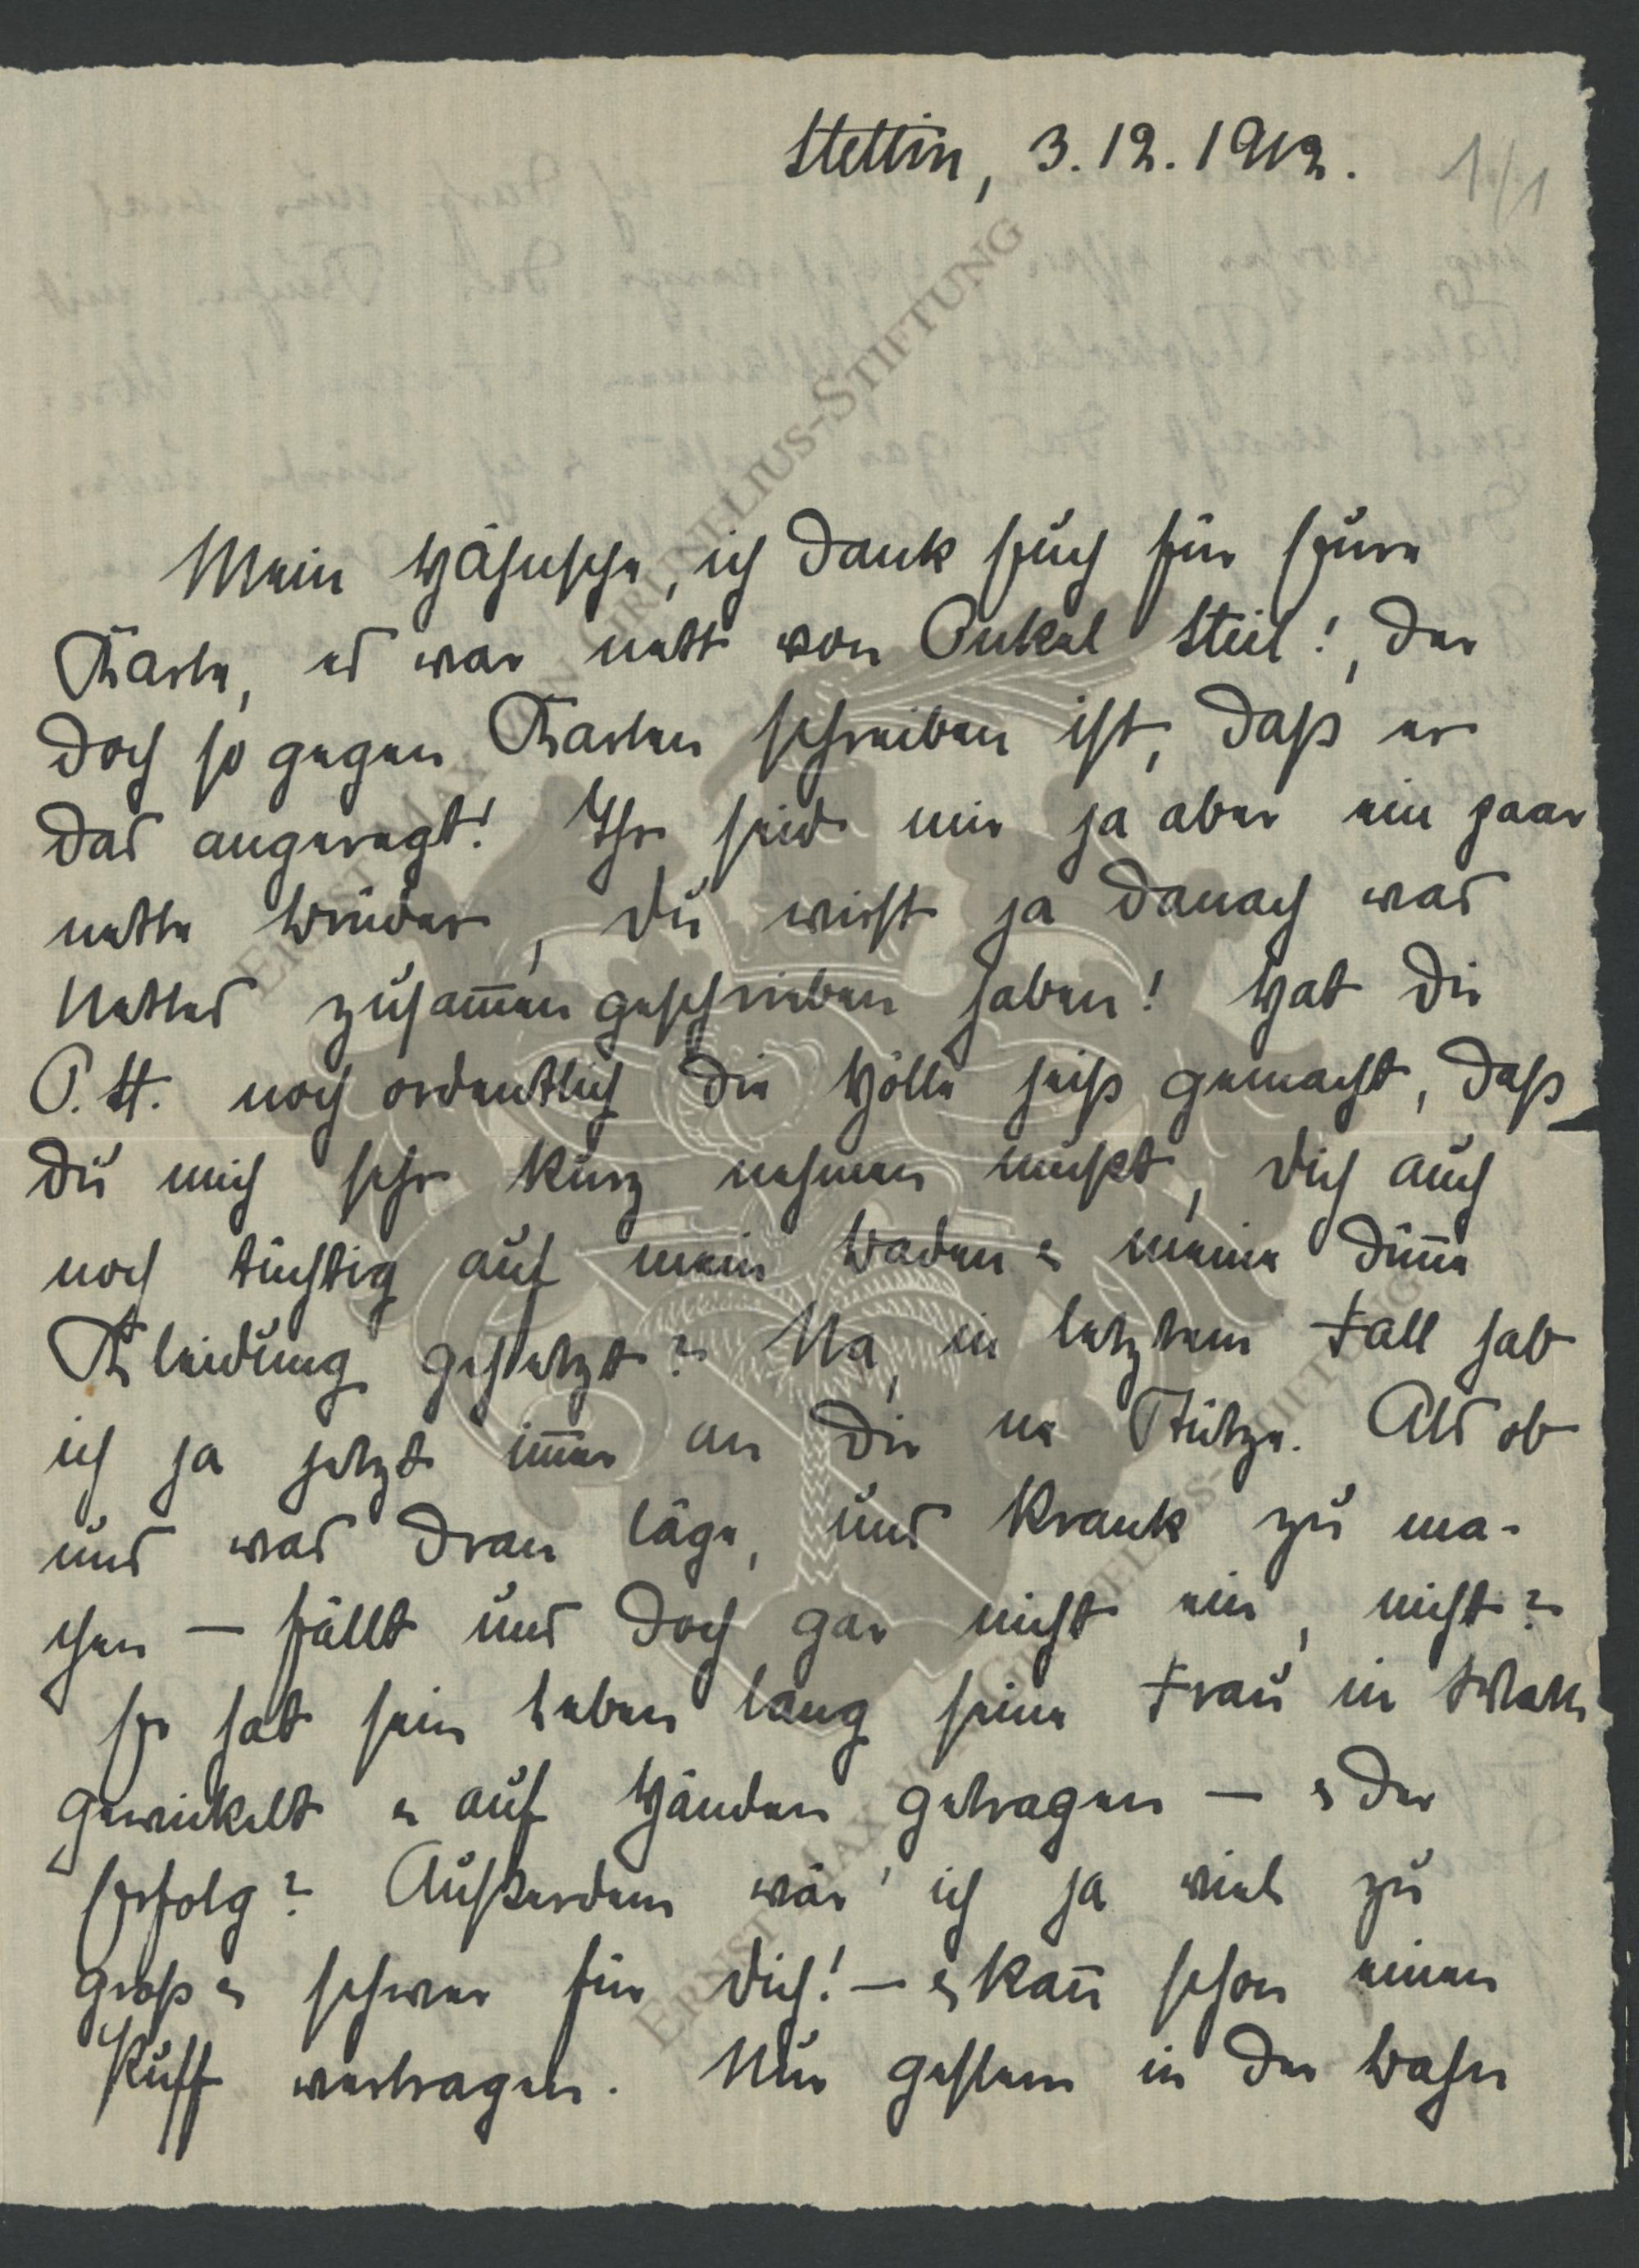 Stettin, 3.12.1912.
1/1
Mein Hähnsche, ich dank Euch für Eure
Karte, es war nett von Onkel Steil!, der
doch so gegen Karten schreiben ist, daß er
das angeregt! Ihr seid mir ja aber ein paar
nette Brüder, Du wirst ja danach was
Nettes zusammen geschrieben haben! Hat Dir
O. St. noch ordentlich die Hölle heiß gemacht, daß
Du mich sehr kurz nehmen mußt, Dich auch
noch tüchtig auf mein Baden & meine dünne
Kleidung gehetzt? Na, in letztem Fall hab
ich ja jetzt immer an Dir ne Stütze. Als ob
uns was dran läge, uns krank zu ma-
chen — fällt uns doch gar nicht ein, nicht?
Er hat sein Leben lang seine Frau in Watte
gewickelt & auf Händen getragen — & der
Erfolg? Außerdem wär' ich ja viel zu
groß & schwer für Dich! — & kann schon einen
Puff vertragen. Nur gestern in der Bahn
ERNST MAX VON GRUNELIUS-STIFTUNG
ERNST MAX VON GRUNELIUS-STIFTUNG